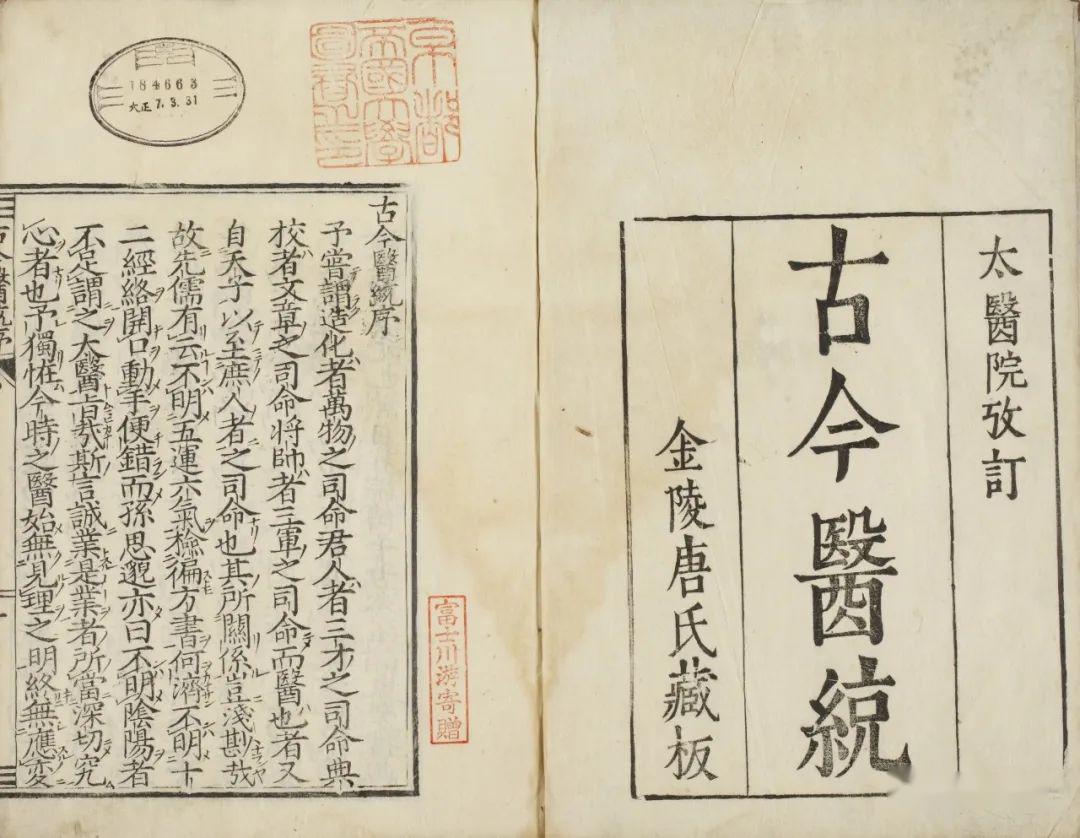 太醫院攷訂
古今醫統
金陵唐氏藏板
京都
帝國大學
圖書之印
184663
大正7.3.31
富士川游寄贈
古今醫統序
予嘗謂造化者萬物之司命君人者三才之司命典
校者文章之司命將帥者三軍之司命而醫也者又
自天子以至庶人者之司命也其所關係豈淺尠哉
故先儒有云不明五運六氣檢徧方書何濟不明十
二經絡開口動手便錯而孫思邈亦曰不明陰陽者
不足謂之大醫旨哉斯言誠業是業者所當深切究
心者也予獨恠今時之醫始無見理之明終無應変
古今醫統序